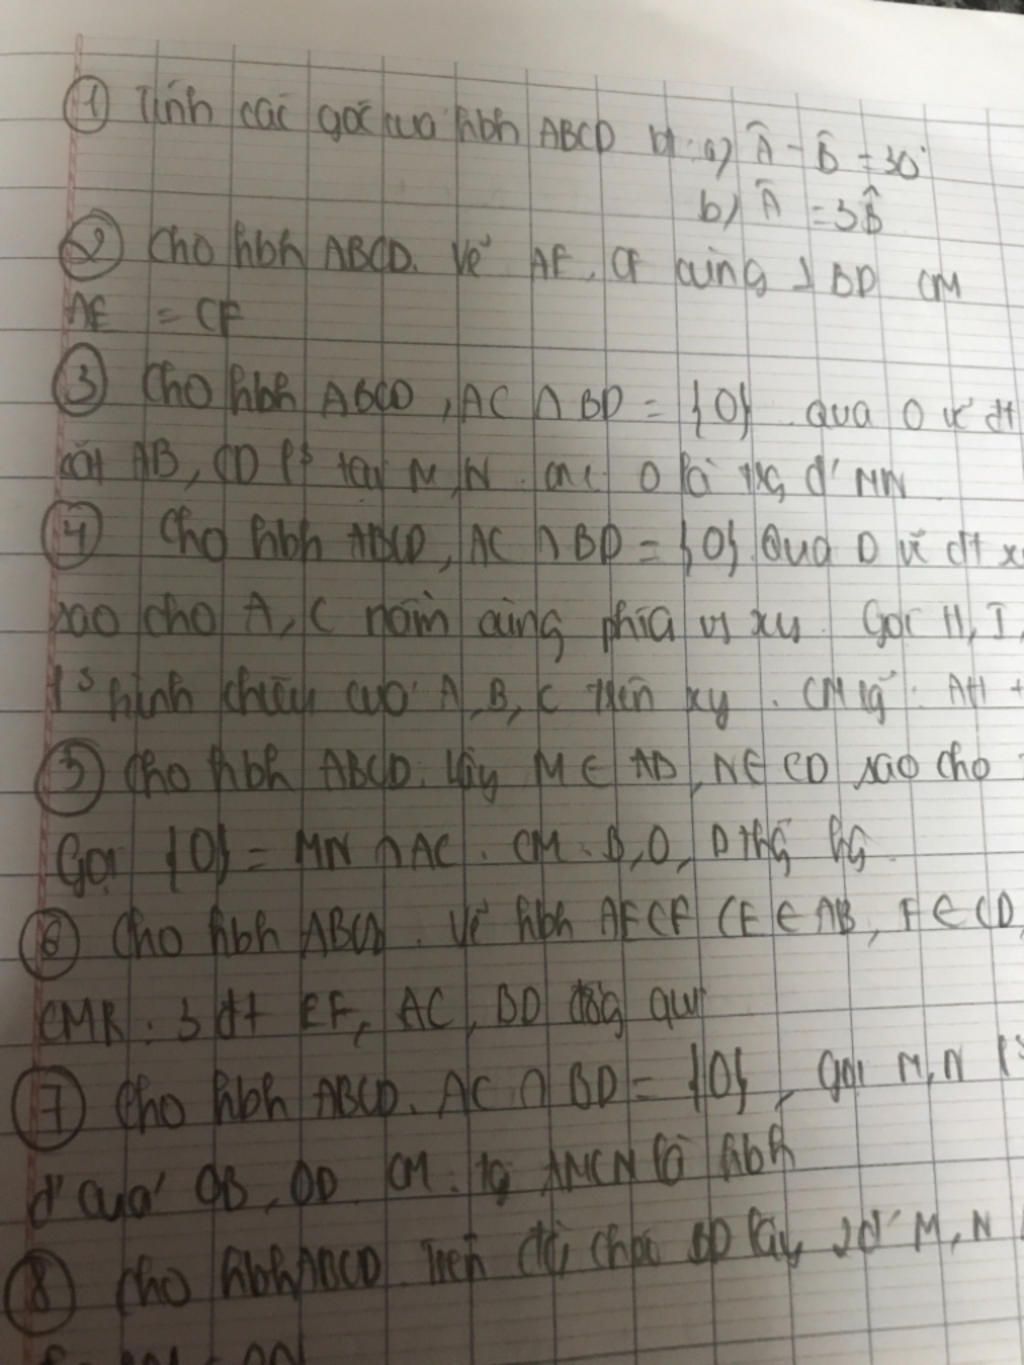 ① Tính các góc của hbh ABCD b: a) Â - B̂ = 30°
b) Â = 3B̂
② Cho hbh ABCD. Vẽ AE, CF cùng ⊥ BD CM
AE = CF
③ Cho hbh ABCD, AC ∩ BD = {O} qua O vẽ đt
cắt AB, CD lˢ tại M, N. O là đ' MN
④ Cho hbh ABCD, AC ∩ BD = {O} Qua D vẽ đt x
sao cho A, C nằm cùng phía vs xy Gọi H, I,
lˢ hình chiếu của A, B, C trên xy. CM: AH +
⑤ Cho hbh ABCD. Lấy M ∈ AB, N ∈ CD sao cho
Gọi {O} = MN ∩ AC. CM: B, O, D thg hg
⑥ Cho hbh ABCD. Vẽ hbh AECF (E ∈ AB, F ∈ CD
CMR: 3 đt EF, AC, BD đồg quy
⑦ Cho hbh ABCD. AC ∩ BD = {O}, gọi M, N lˢ
đ' của OB, OD. CM: tg AMCN là hbh
⑧ Cho hbh ABCD. Trên chéo BD lấy 2 đ' M, N